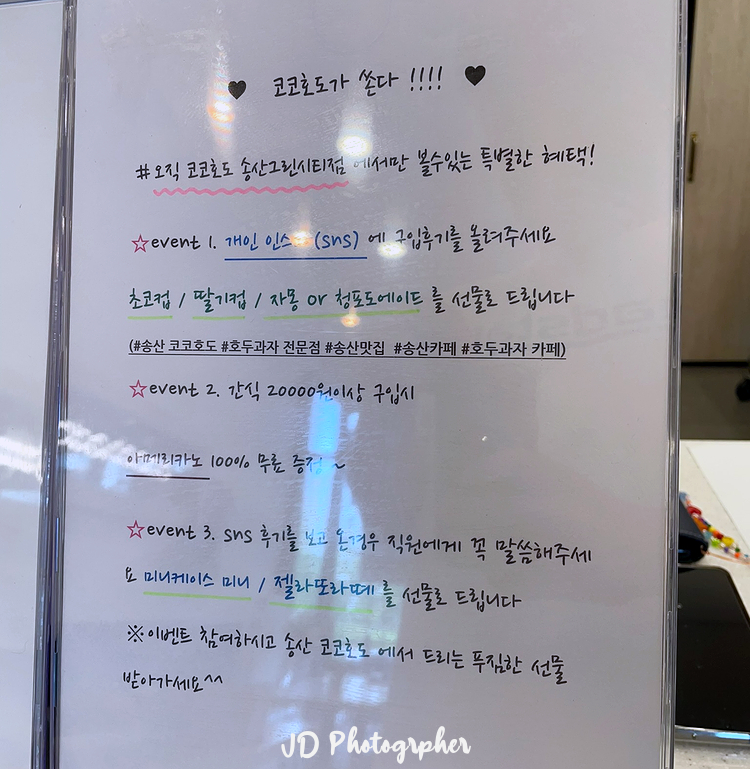 ♥ 코코호도가 쏜다 !!!! ♥
#오직 코코호도 송산그린시티점 에서만 볼수있는 특별한 혜택!
☆event 1. 개인 (sns) 에 구입후기를 올려주세요
초코컵 / 딸기컵 / 자몽 or 청포도에이드 를 선물로 드립니다
(#송산 코코호도 #호두과자 전문점 #송산맛집 #송산카페 #호두과자 카페)
☆event 2. 간식 20000원이상 구입시
아메리카노 100% 무료 증정 ~
☆event 3. sns 후기를 보고 온경우 직원에게 꼭 말씀해주세
요 미니케이스 미니 / 젤라또라떼 를 선물로 드립니다
※이벤트 참여하시고 송산 코코호도 에서 드리는 푸짐한 선물
받아가세요^^
JD Photogrpher